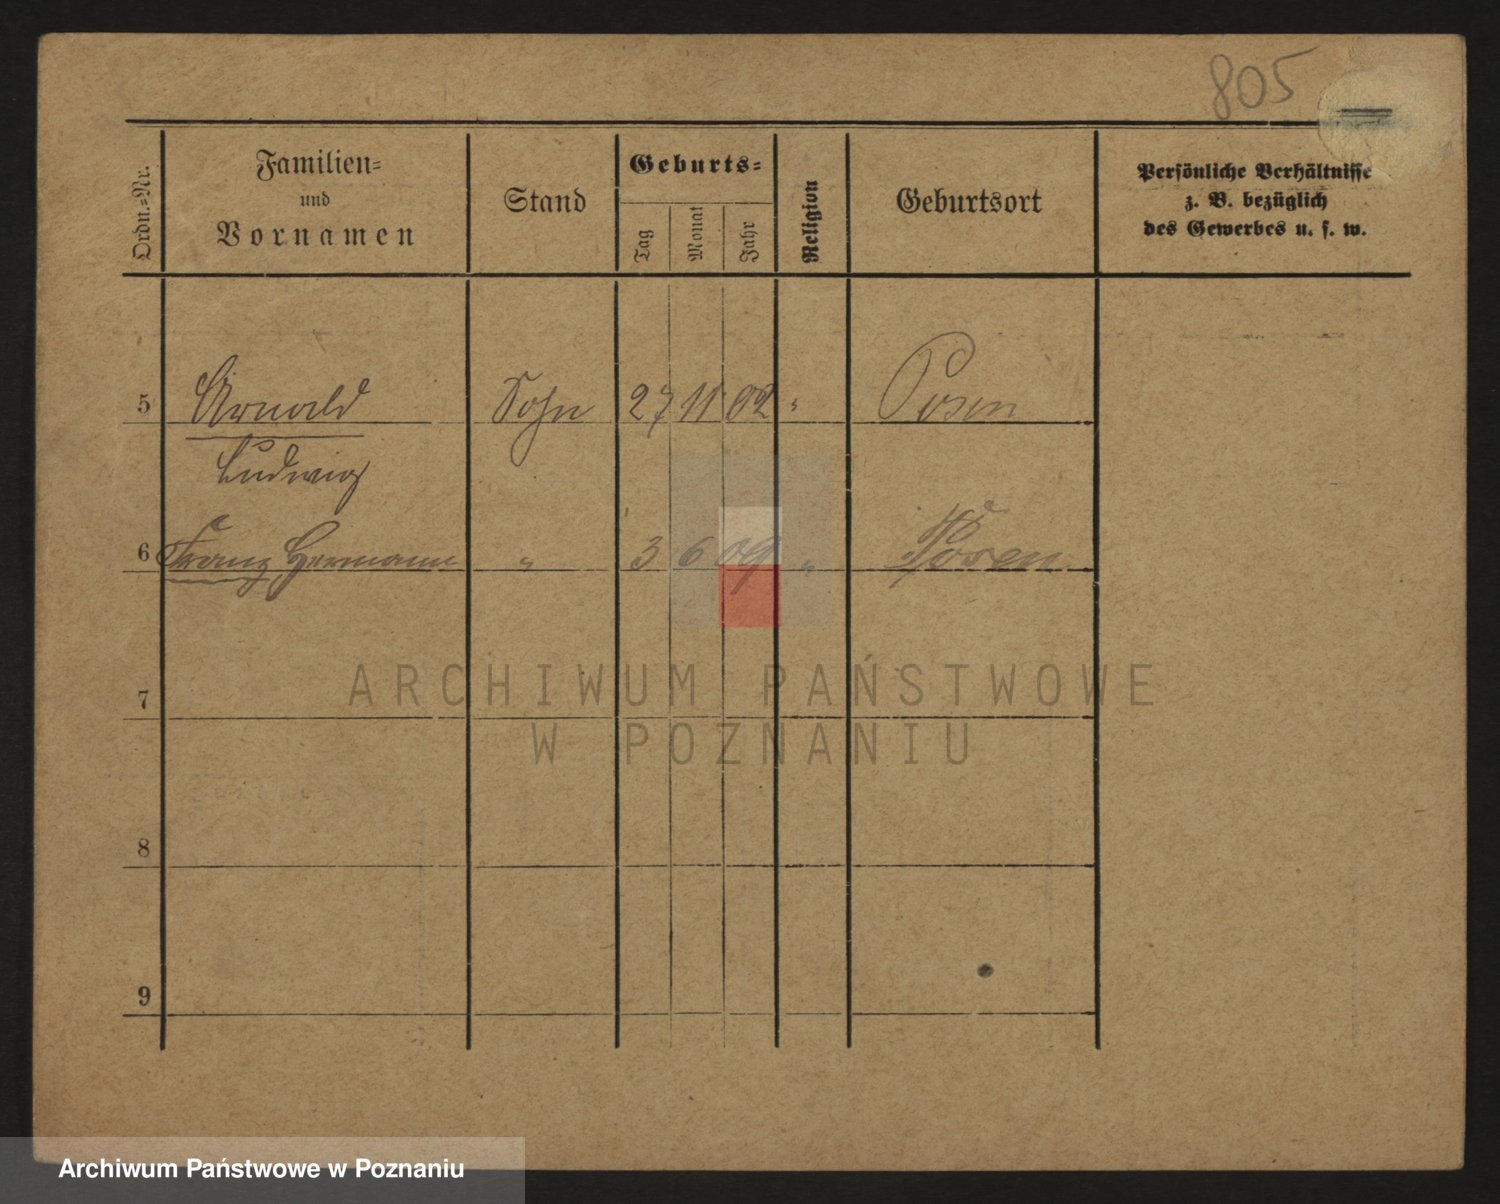 805
Ordn.-Nr.
Familien-
und
Vornamen
Stand
Geburts-
Tag
Monat
Jahr
Religion
Geburtsort
Persönliche Verhältnisse
z. B. bezüglich
des Gewerbes u. s. w.
5 Arnold Sohn 27 11 02 " Posen
Ludwig
6 Franz Hermann " 3 6 09 " Posen
7
8
9
ARCHIWUM PAŃSTWOWE
W POZNANIU
Archiwum Państwowe w Poznaniu